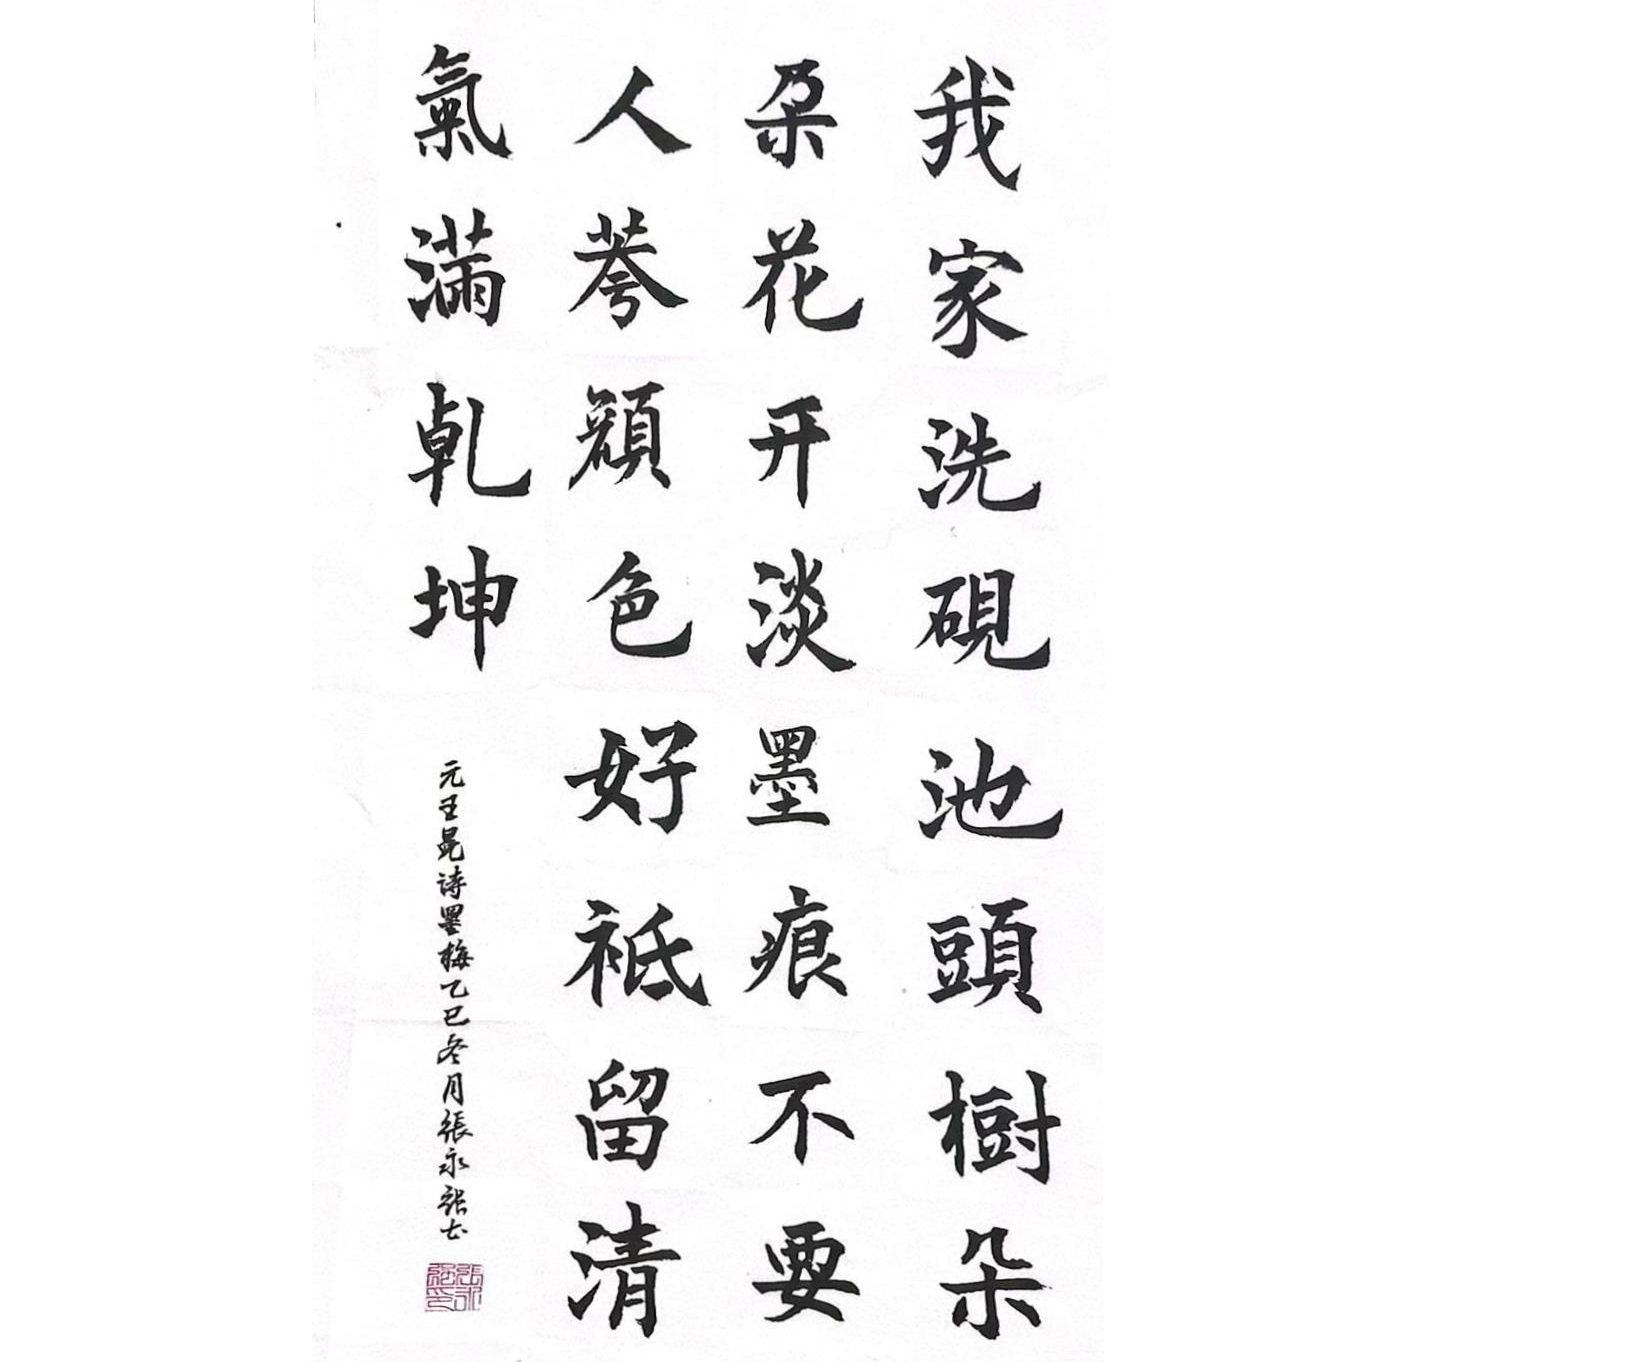 我家洗硯池頭樹朵
朶花开淡墨痕不要
人荂顔色好祇留清
氣滿乹坤
元王冕诗墨梅乙巳冬月張永